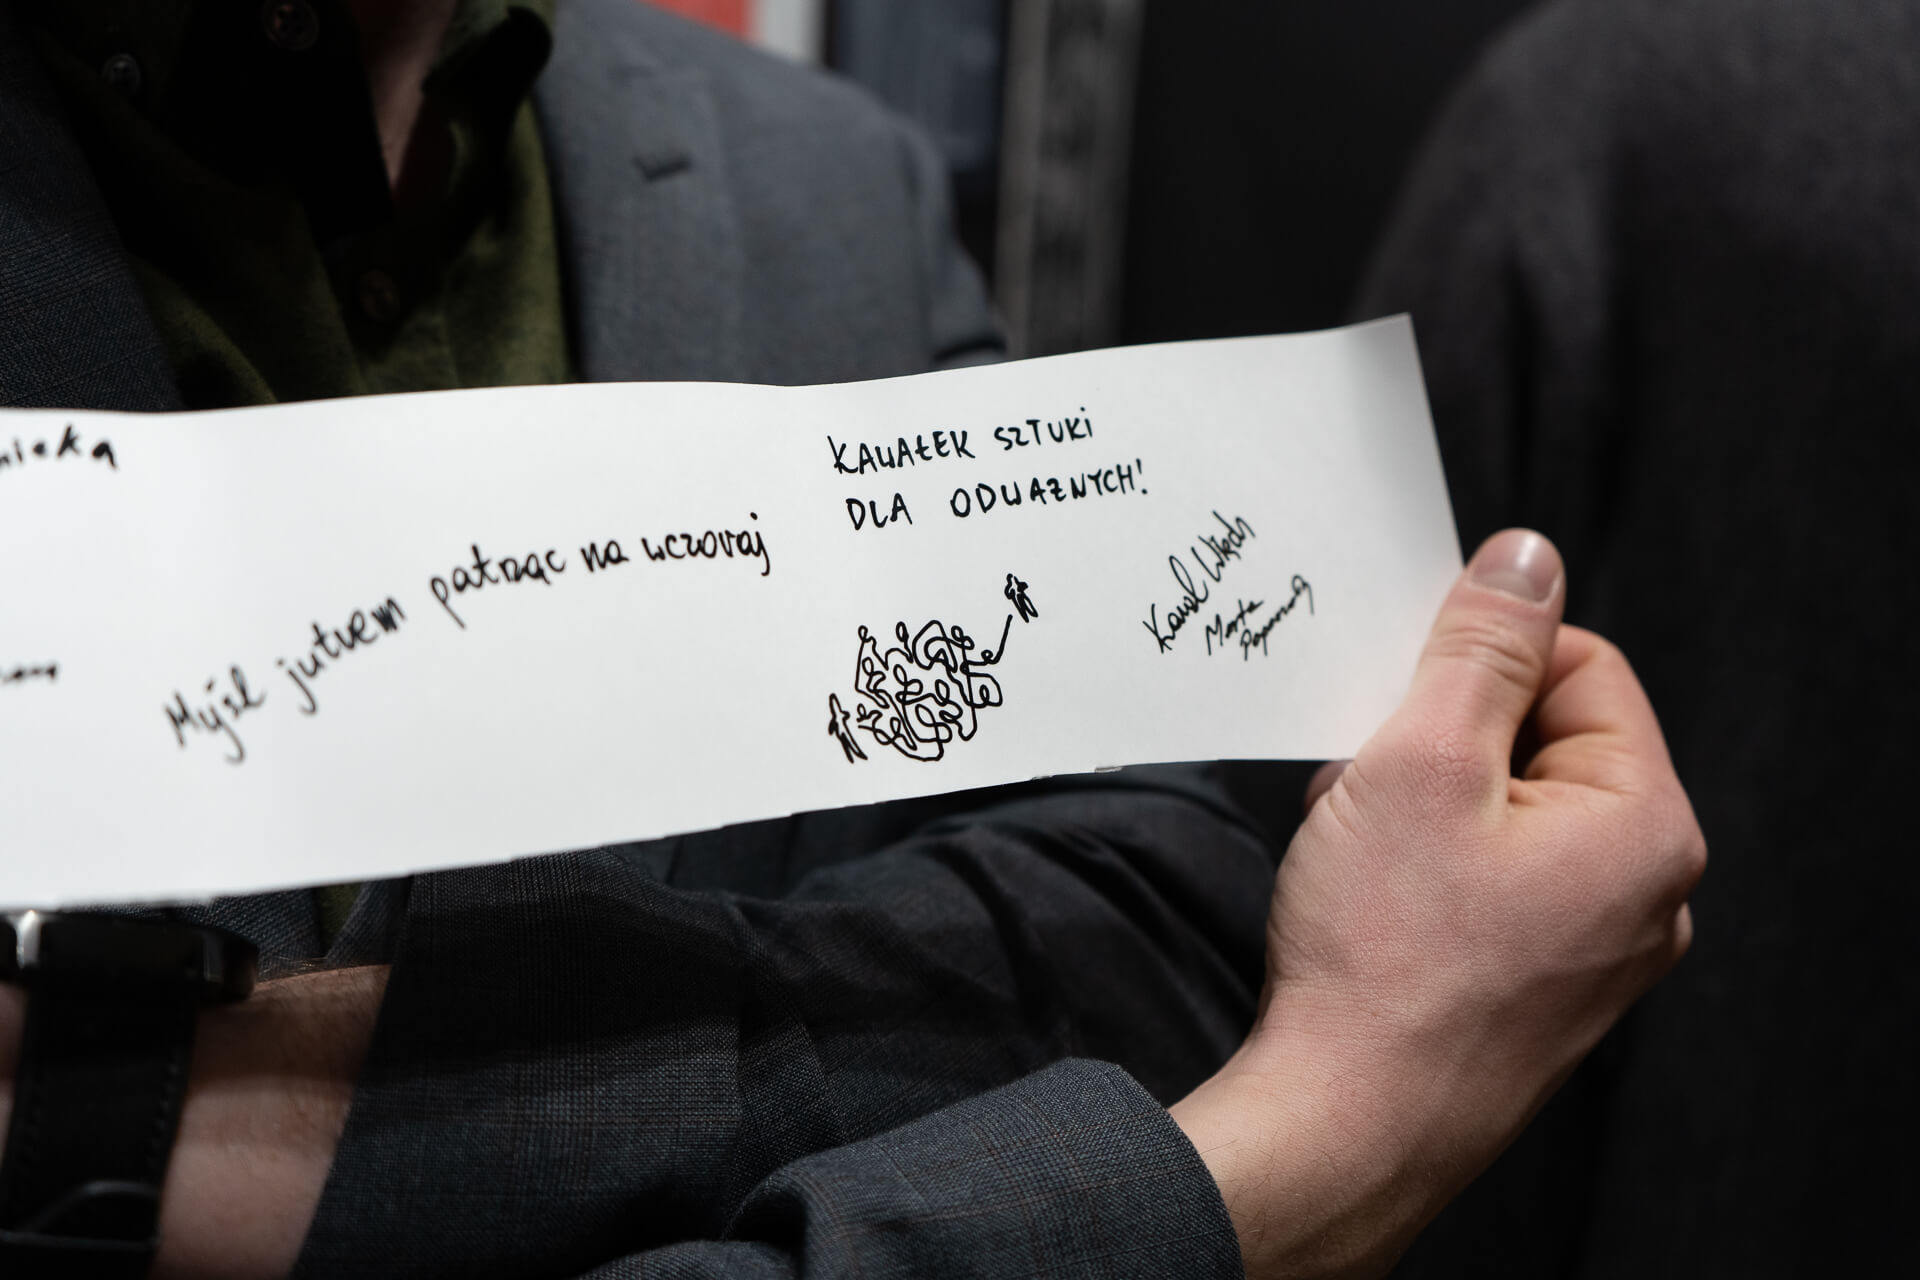 Myśl jutrem patrząc na wczoraj
KAWAŁEK SZTUKI
DLA ODWAŻNYCH!
Karol
Marta